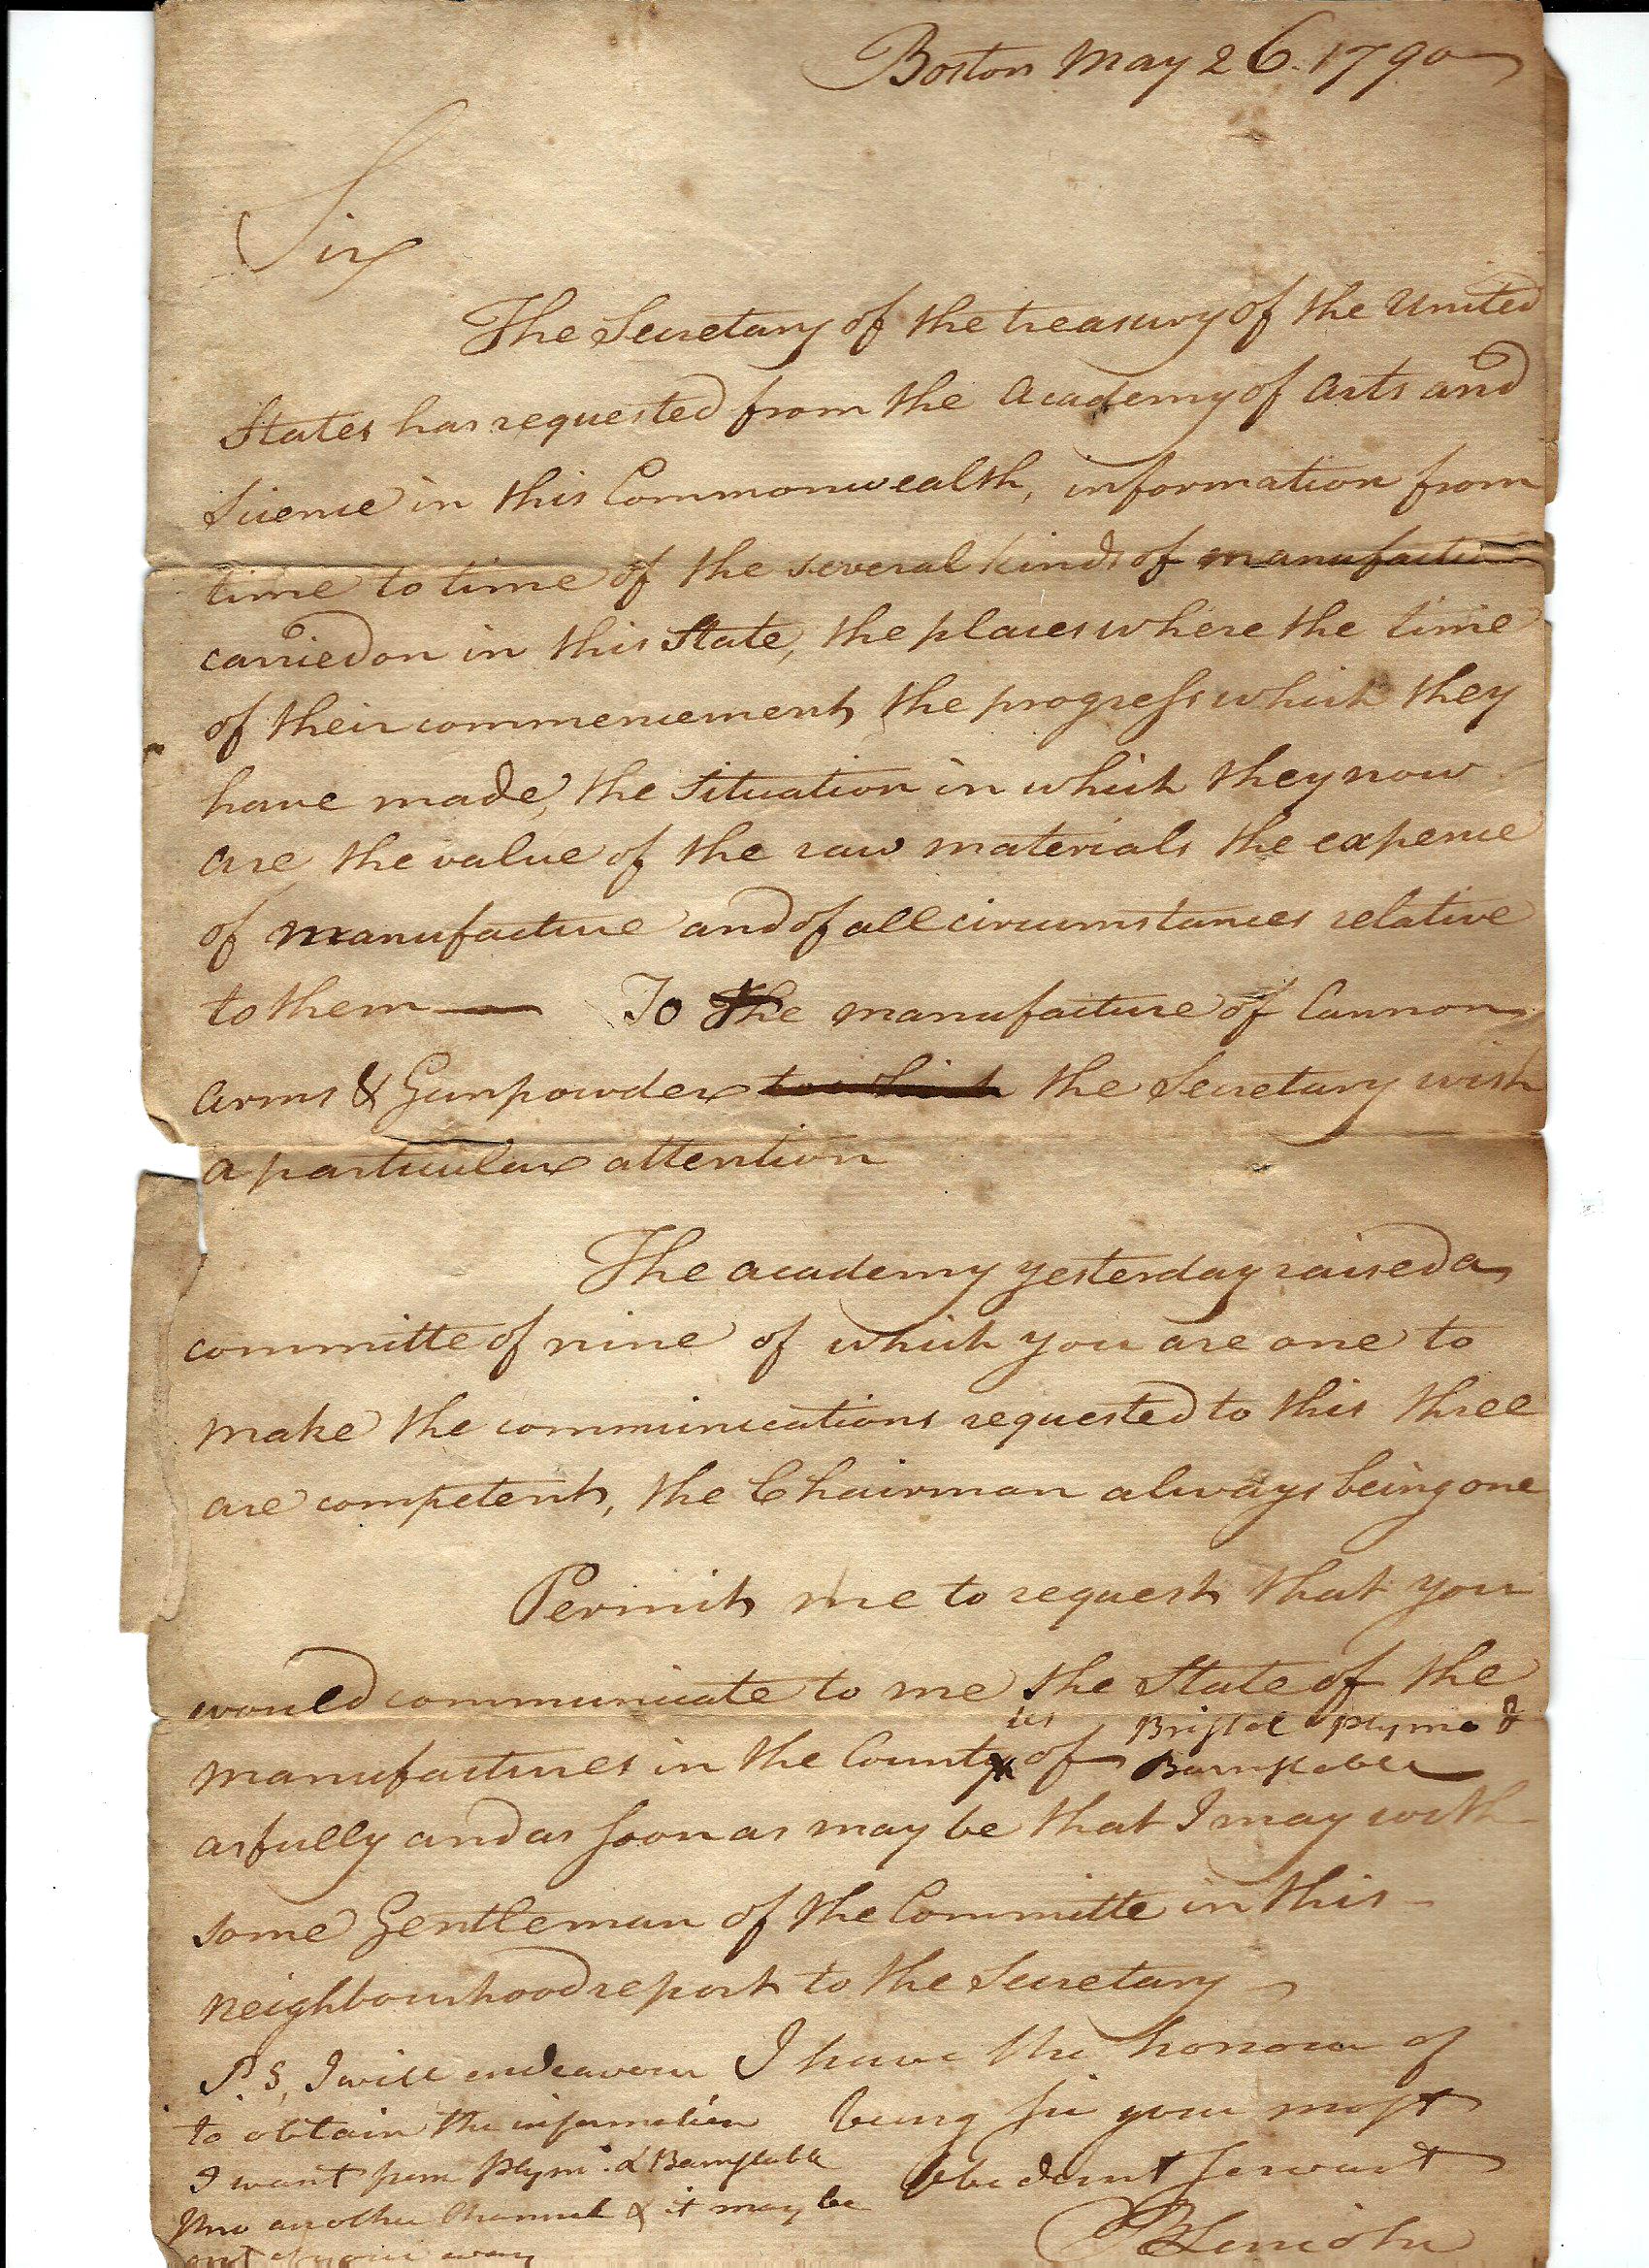 Boston May 26. 1790
Sir
The Secretary of the treasury of the United
States has requested from the Academy of Arts and
Science in this Commonwealth, information from
time to time of the several kinds of manufactu
carried on in this State, the places where the time
of their commencement, the progress which they
have made, the Situation in which they now
are the value of the raw materials the expence
of manufacture and of all circumstances relative
to them — To the manufacture of Cannon
Arms & Gunpowder to which the Secretary wish
a particular attention
The academy yesterday raised a
committe of nine of which you are one to
make the communications requested to this three
are competent, the Chairman always being one
Permit me to request that you
would communicate to me the State of the
manufactures in the Counties of Bristol Plymo &
Barnstable
as fully and as soon as may be that I may with
some Gentleman of the Committe in this
neighbourhood report to the Secretary
I have the honour of
being Sir your most
obedient servant
B Lincoln
P.S, I will endeavour
to obtain the information
I want from Plym. & Barnstable
thro another Channel & it may be
out of your way